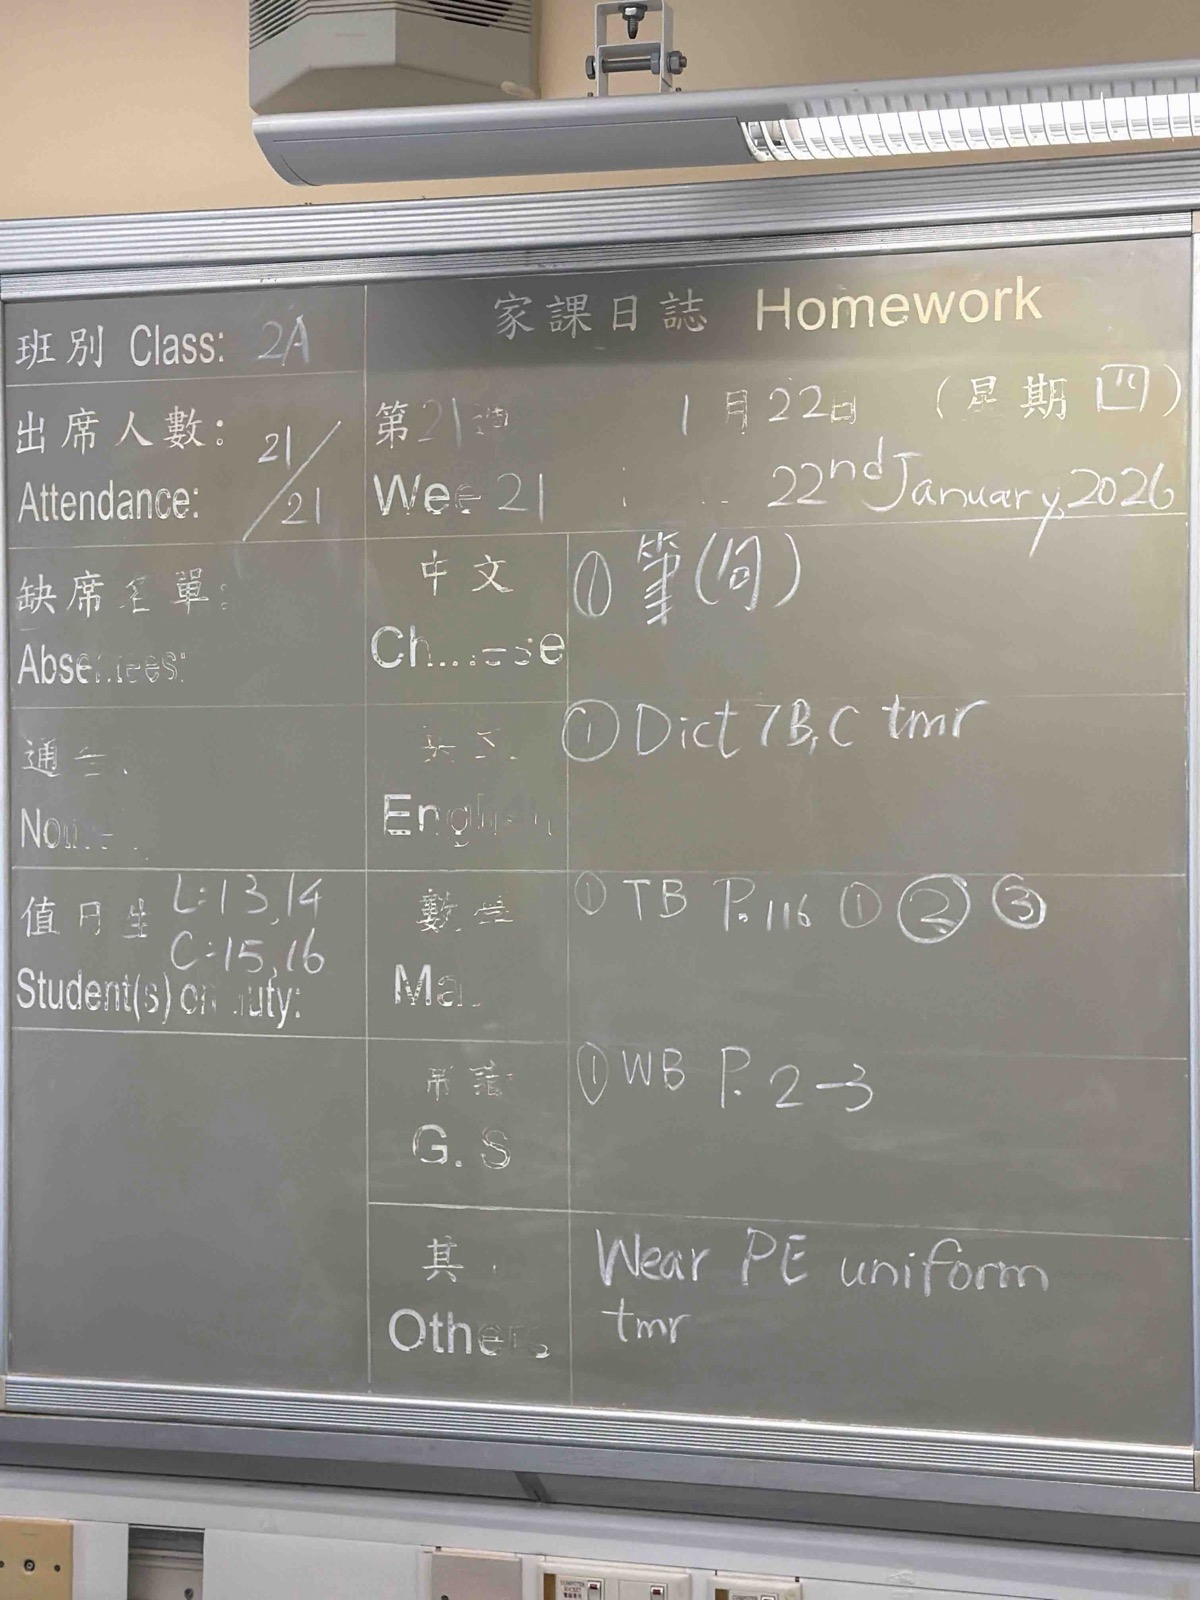 家課日誌 Homework
班別 Class: 2A
出席人數: 21/21
Attendance:
第21週 1月22日 (星期四)
Wee 21 22nd January, 2026
缺席名單:
Absentees:
通告
值日生 L:13,14
C:15,16
Student(s) on duty:
中文
Chinese
① 筆(同)
English
① Dict 7B,C tmr
數學
Ma
① TB P.116 ① ② ③
常識
G. S
① WB P. 2-3
其
Others
Wear PE uniform
tmr
COMPUTER
SOCKET